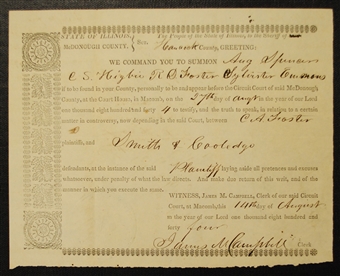 STATE OF ILLINOIS,
McDONOUGH COUNTY.
Sct.
The People of the State of Illinois, to the Sheriff of
Hancock County, GREETING:
WE COMMAND YOU TO SUMMON Aug Spencer
C. S. Higbee R C Foster Sylvester Emmons
if to be found in your County, personally to be and appear before the Circuit Court of said McDonough
County, at the Court House, in Macomb, on the 27th day of Augt in the year of our Lord
one thousand eight hundred and forty 4 to testify, and the truth to speak, in relation to a certain
matter in controversy, now depending in the said Court, between C A Foster
plaintiffs, and Smith & Coolidge
defendants, at the instance of the said Plaintiff laying aside all pretences and excuses
whatsoever, under penalty of what the law directs. And make due return of this writ, and of the
manner in which you execute the same.
WITNESS, JAMES M. CAMPBELL, Clerk of our said Circuit
Court, at Macomb, this 14th day of August
in the year of our Lord one thousand eight hundred and
forty four
James M Campbell Clerk